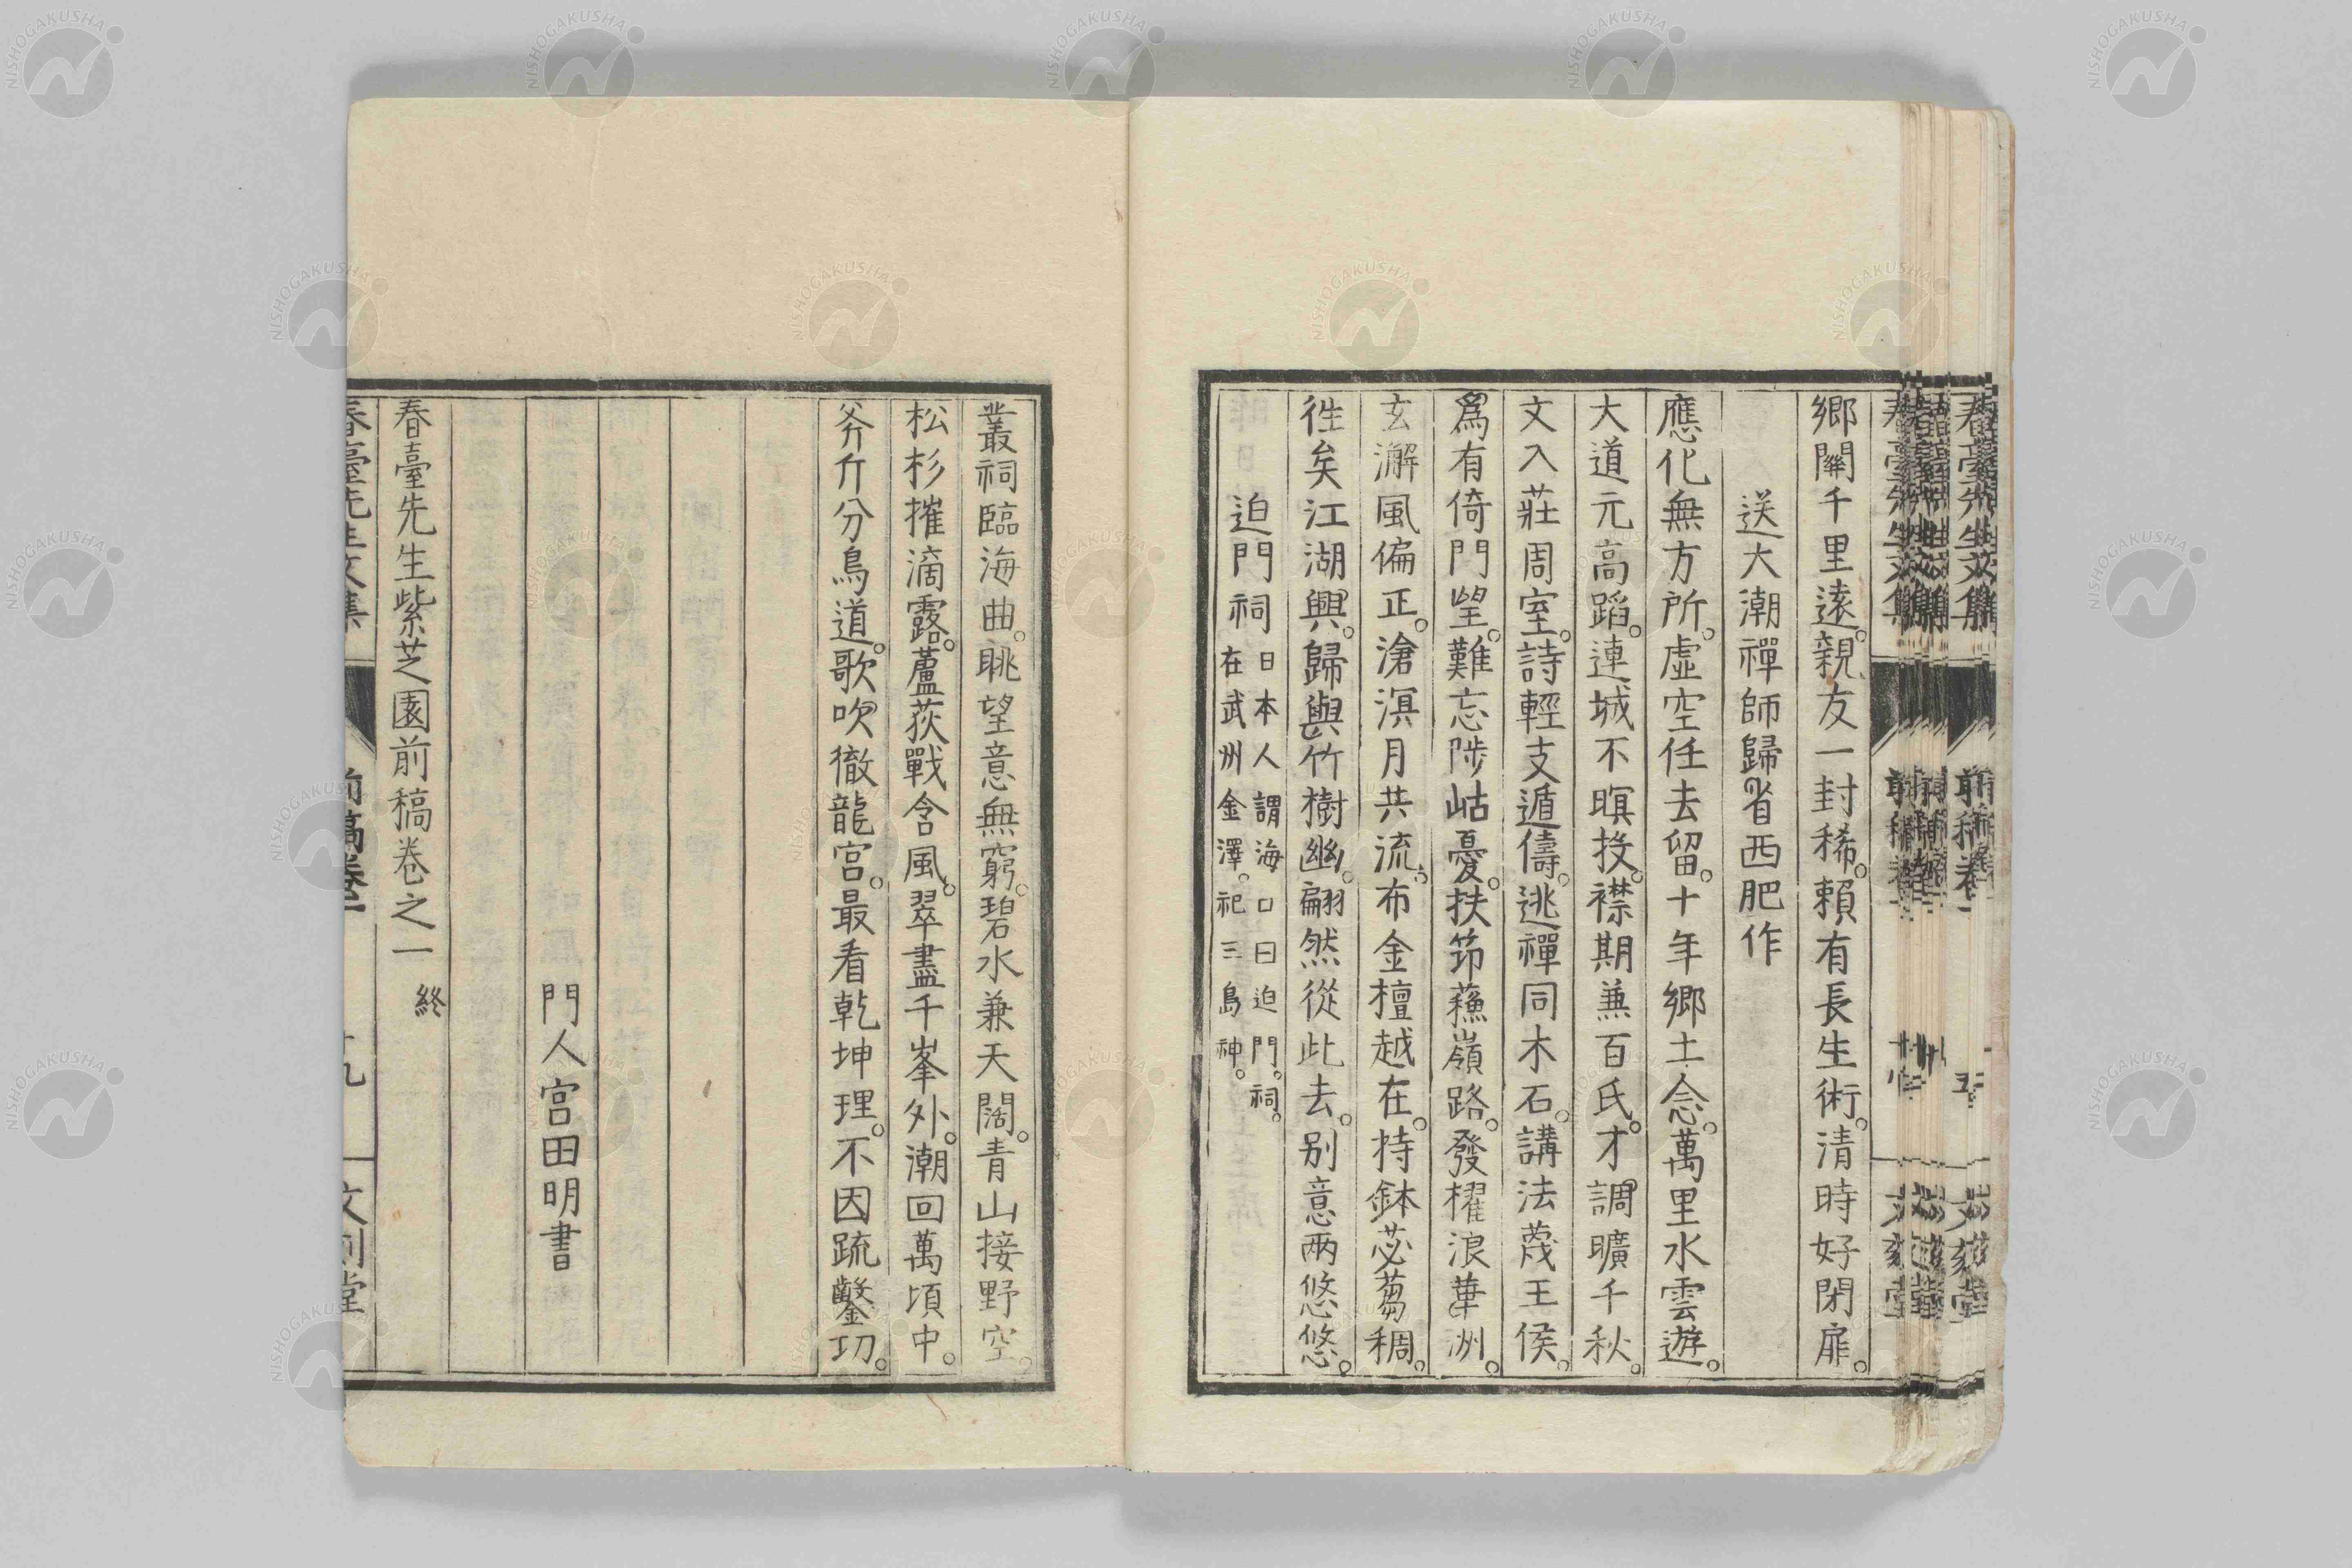 鄉關千里遠。親友一封稀。賴有長生術。清時好閉扉。
送大潮禪師歸省西肥作
應化無方所。虛空任去留。十年鄉土念。萬里水雲遊。
大道元高蹈。連城不暝投。襟期兼百氏。才調曠千秋。
文入莊周室。詩輕支遁儔。逃禪同木石。講法蔑王侯。
爲有倚門望。難忘陟岵憂。扶笻蘓嶺路。發櫂浪華洲。
玄澥風偏正。滄溟月共流。布金檀越在。持鉢苾蒭稠。
徃矣江湖興。歸與竹樹幽。翩然從此去。別意兩悠悠。
迫門祠
日本人謂海口曰迫門。祠
在武州金澤。祀三島神。
叢祠臨海曲。眺望意無窮。碧水兼天闊。青山接野空。
松杉摧滴露。蘆荻戰含風。翠盡千峯外。潮回萬頃中。
斧斤分鳥道。歌吹徹龍宮。最看乾坤理。不因疏鑿功。
門人宮田明書
春臺先生紫芝園前稿卷之一 終
春臺先生文集
前稿卷一